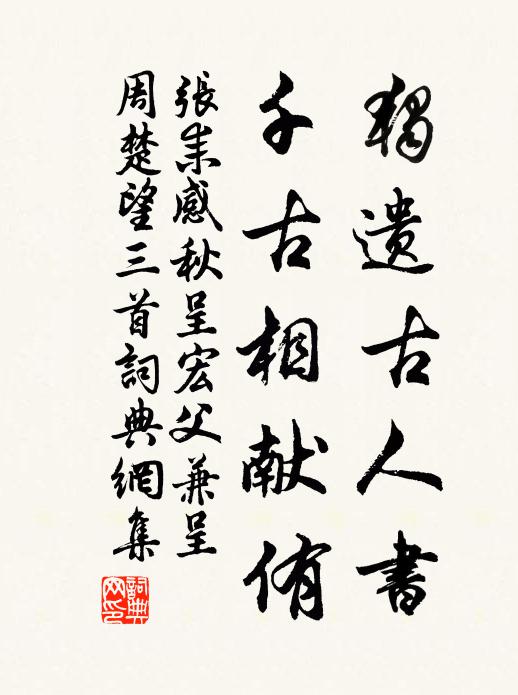 獨遺古人書
千古相献侑
張耒感秋呈宏父兼呈
周楚望三首詞典網集
詞典
网印